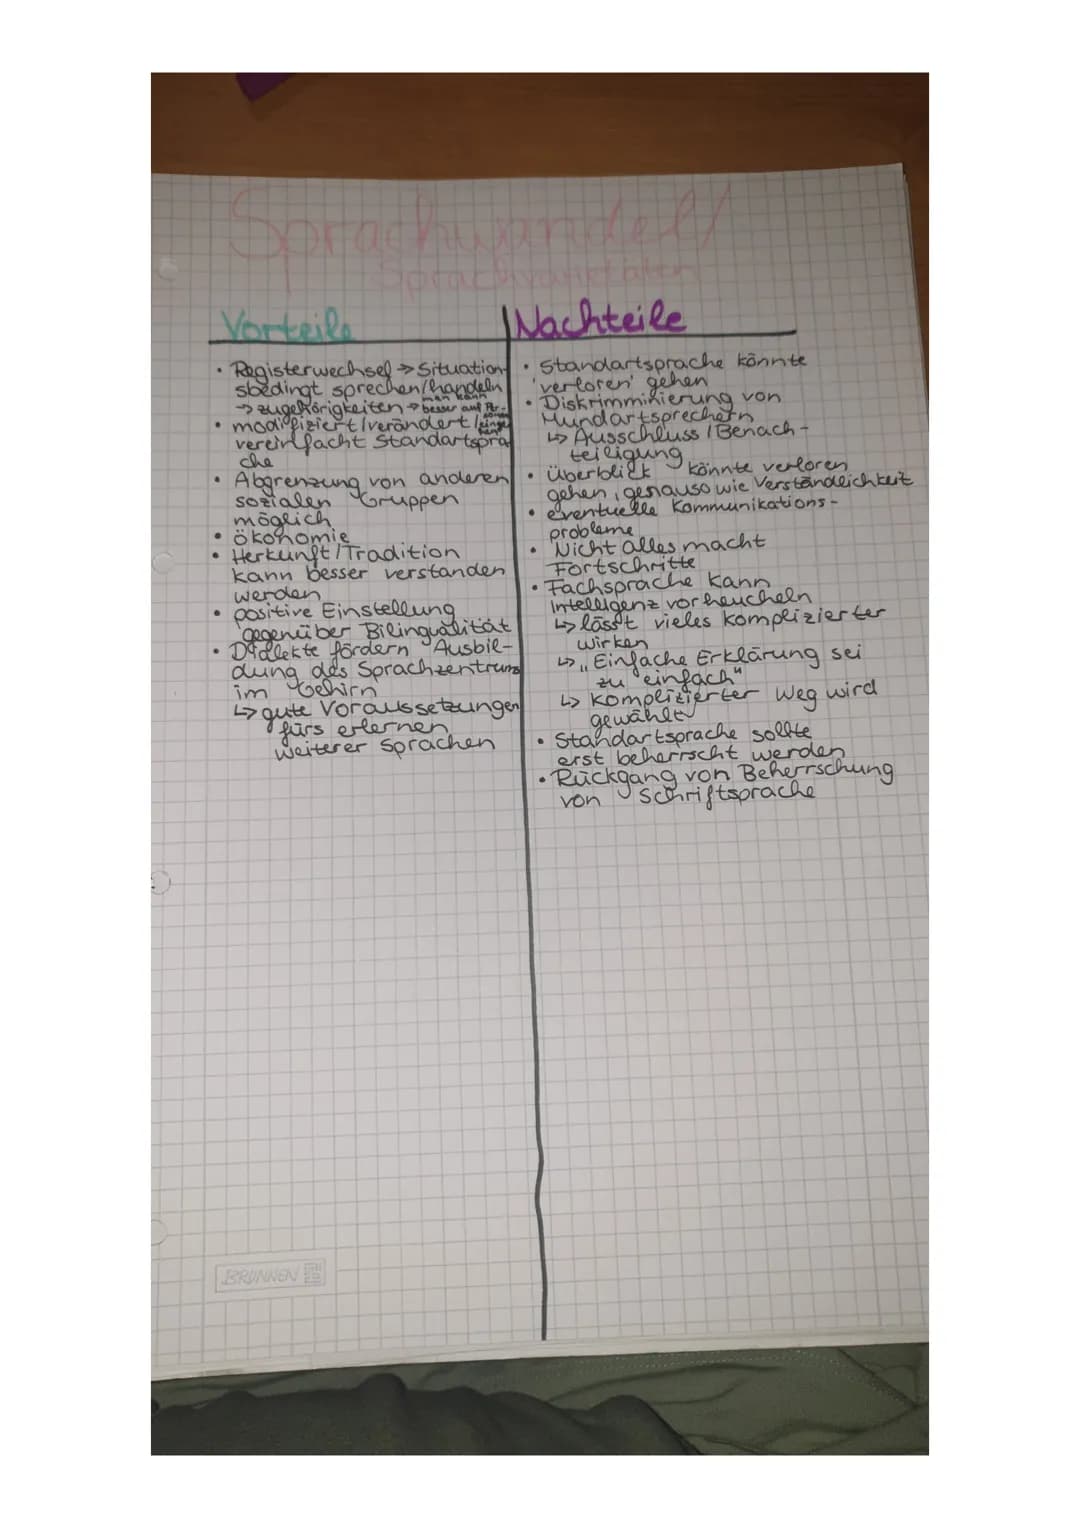 Sprachwandel/
Sprachvarietäten
Vorteile
• Registerwechsel → Situation-
sbedingt sprechen/handeln
→ zugehörigkeiten → man kann besser auf Per-
• modifiziert/verändert/
vereinfacht Standartspra
che
• Abgrenzung von anderen
sozialen Gruppen
möglich
• ökonomie
• Herkunft/Tradition
kann besser verstanden
werden
• positive Einstellung
gegenüber Bilingualität
• Dialekte fördern Ausbil-
dung des Sprachzentrums
im Gehirn
↳ gute Voraussetzungen
fürs erlernen
weiterer Sprachen
Nachteile
• Standartsprache könnte
'verloren' gehen
• Diskrimminierung von
Mundartsprechern
↳ Ausschluss/Benach-
teiligung
• Überblick könnte verloren
gehen, genauso wie Verständlichkeit
• eventuelle Kommunikations-
probleme
• Nicht alles macht
Fortschritte
• Fachsprache kann
Intelligenz vorheucheln
↳ lässt vieles komplizierter
wirken
↳ „Einfache Erklärung sei
zu einfach"
↳ komplizierter Weg wird
gewählt
• Standartsprache sollte
erst beherrscht werden
• Rückgang von Beherrschung
von Schriftsprache
BRUNNEN